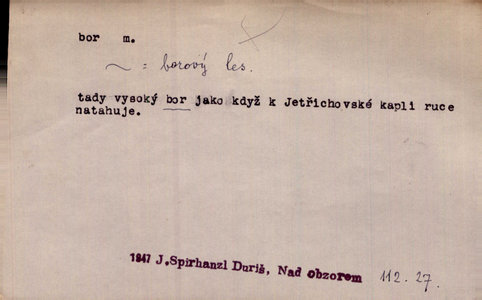 bor m.
~ = borový les.
tady vysoký bor jako když k Jetřichovské kapli ruce
natahuje.
1947 J.Spirhanzl Duriš, Nad obzorem 112.27.